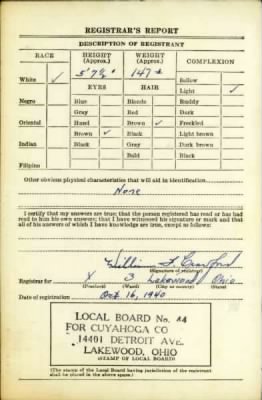 REGISTRAR'S REPORT
DESCRIPTION OF REGISTRANT
RACE HEIGHT (Approx.) WEIGHT (Approx.) COMPLEXION
White ✓ 5' 7½" 147 Sallow
EYES HAIR Light ✓
Negro Blue Blonde Ruddy
Gray Red Dark
Oriental Hazel Brown ✓ Freckled
Brown ✓ Black Light brown
Indian Black Gray Dark brown
Bald Black
Filipino
Other obvious physical characteristics that will aid in identification
None
I certify that my answers are true; that the person registered has read or has had
read to him his own answers; that I have witnessed his signature or mark and that
all of his answers of which I have knowledge are true, except as follows:
William Crawford
(Signature of registrar)
Registrar for X 3 Lakewood Ohio
(Precinct) (Ward) (City or county) (State)
Date of registration Oct 16, 1940
LOCAL BOARD No. 44
FOR CUYAHOGA CO
14401 DETROIT AVE.
LAKEWOOD, OHIO
(STAMP OF LOCAL BOARD)
(The stamp of the Local Board having jurisdiction of the registrant
shall be placed in the above space.)